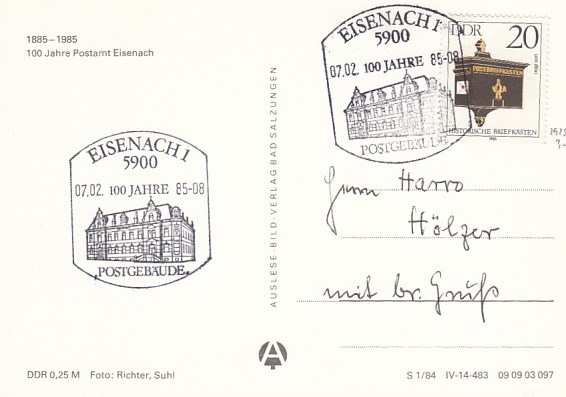 1885–1985
100 Jahre Postamt Eisenach
EISENACH 1
5900
07.02. 100 JAHRE 85-08
POSTGEBÄUDE
AUSLESE BILD-VERLAG BAD SALZUNGEN
EISENACH 1
5900
07.02. 100 JAHRE 85-08
POSTGEBÄUDE
DDR 20
POSTBRIEFKASTEN
HISTORISCHE BRIEFKASTEN
Herrn Harro
Hölzer
mit br. Gruß
DDR 0,25 M Foto: Richter, Suhl
S 1/84 IV-14-483 09 09 03 097